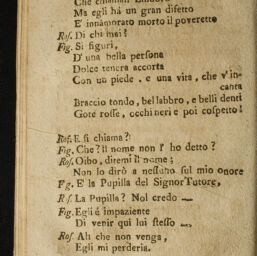 Che chiamasi Lindoro
Ma egli há un gran difetto
E' innamorato morto il poveretto
Ros. Di chi mai?
Fig. Si figuri,
D' una bella persona
Dolce tenera accorta
Con un piede, e una vita, che v'in-
canta
Braccio tondo, bel labbro, e belli denti
Gote rosse, occhi neri e poi cospetto!
Ros. E si chiama?
Fig. Che? il nome non l' ho detto?
Ros. Oibo, diremi il nome;
Non lo dirò a nessuno sul mio onore
Fig. E' la Pupilla del Signor Tutore,
R s. La Pupilla? Nol credo —
Fig. Egli é impaziente
Di venir qui lui stesso —
Ros. Ah che non venga,
Egli mi perderia.